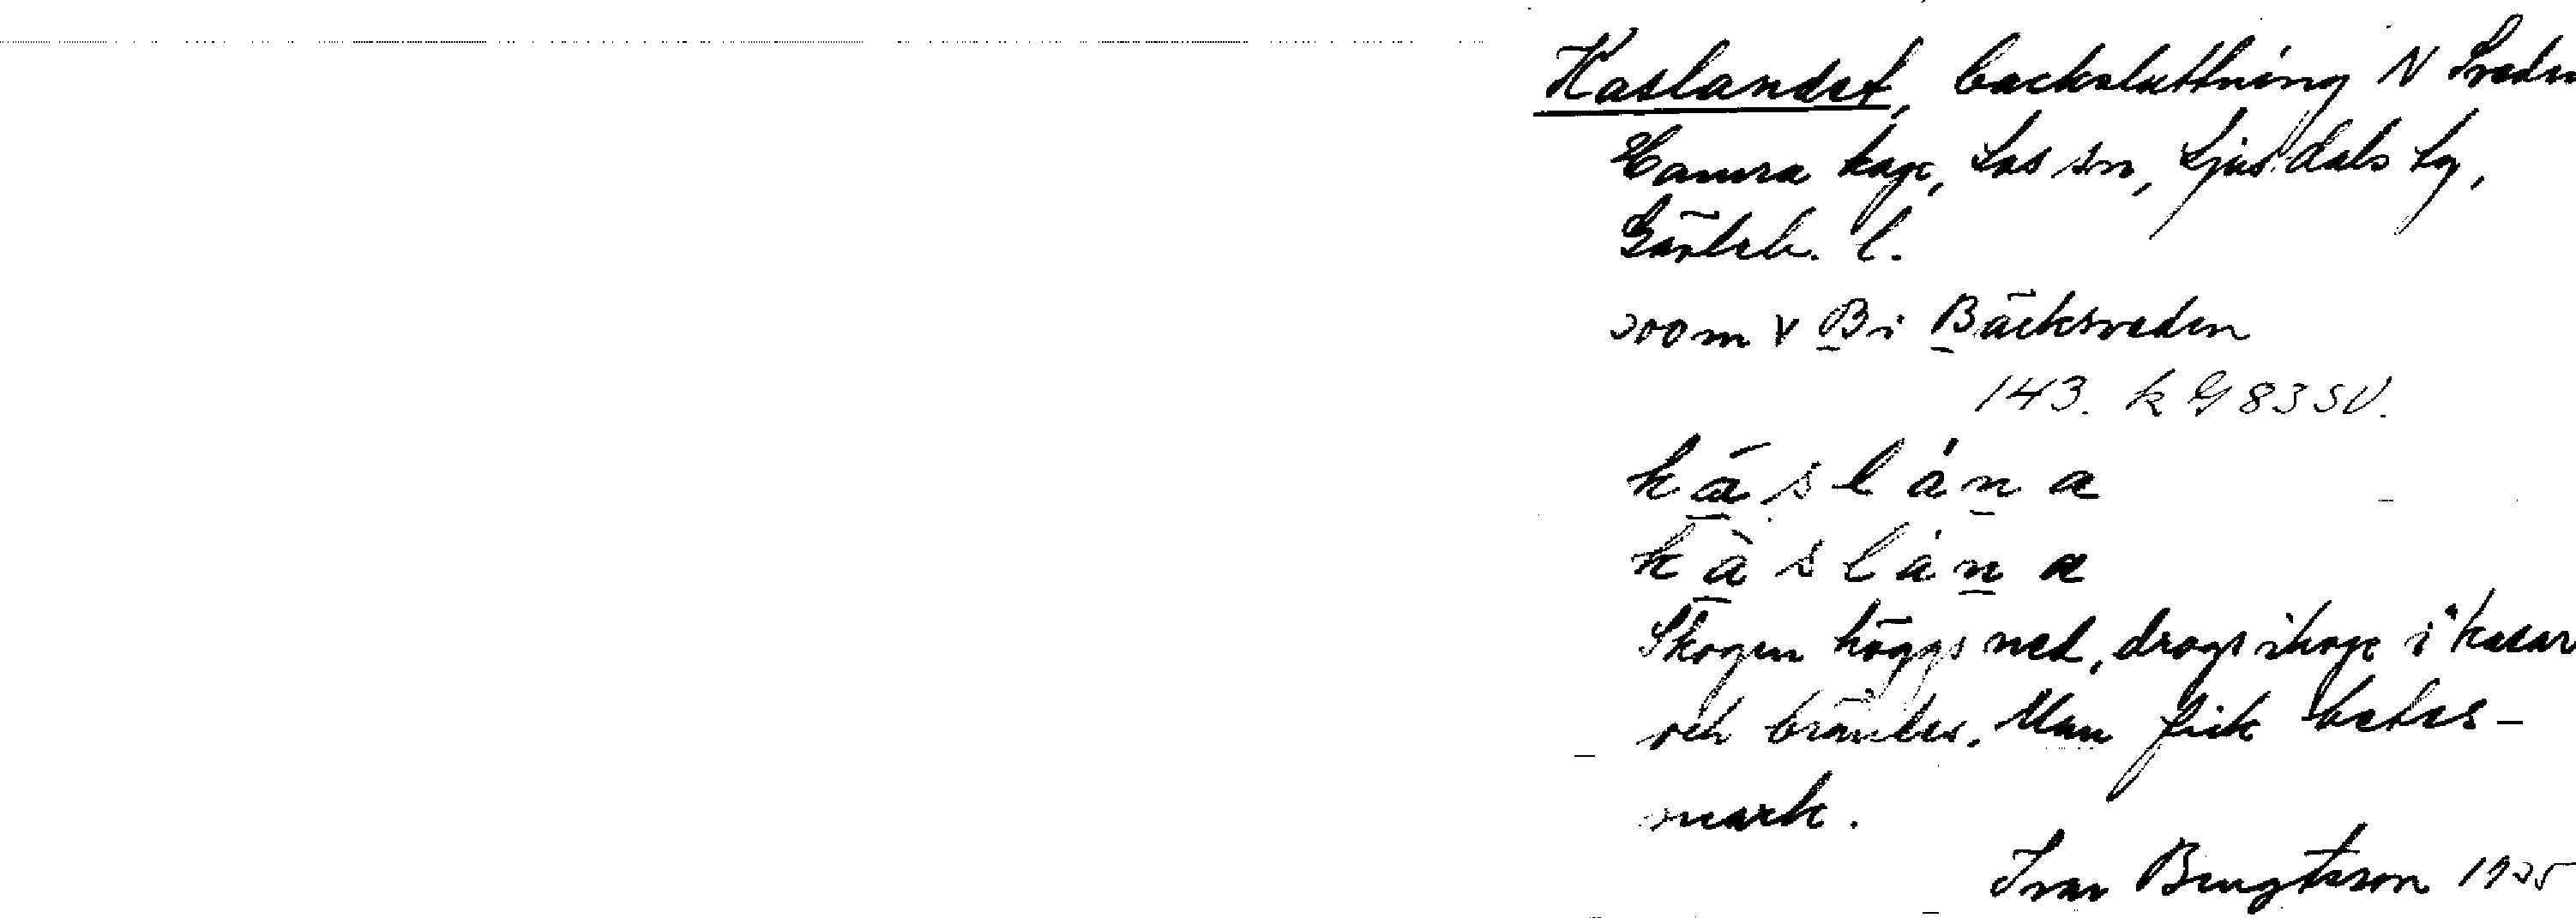 Kaslandet, backsluttning N Sveden
Hamra kage, Los sn, Ljusdals tg,
Gävleb. l.
200 m V B i Bäcksveden
143. k G 83 SV.
káslána
kàslána
Skogen höggs ned, drogs ihop i "kasar
och brändes. Man fick betes-
mark.
Ivar Bengtsson 1935